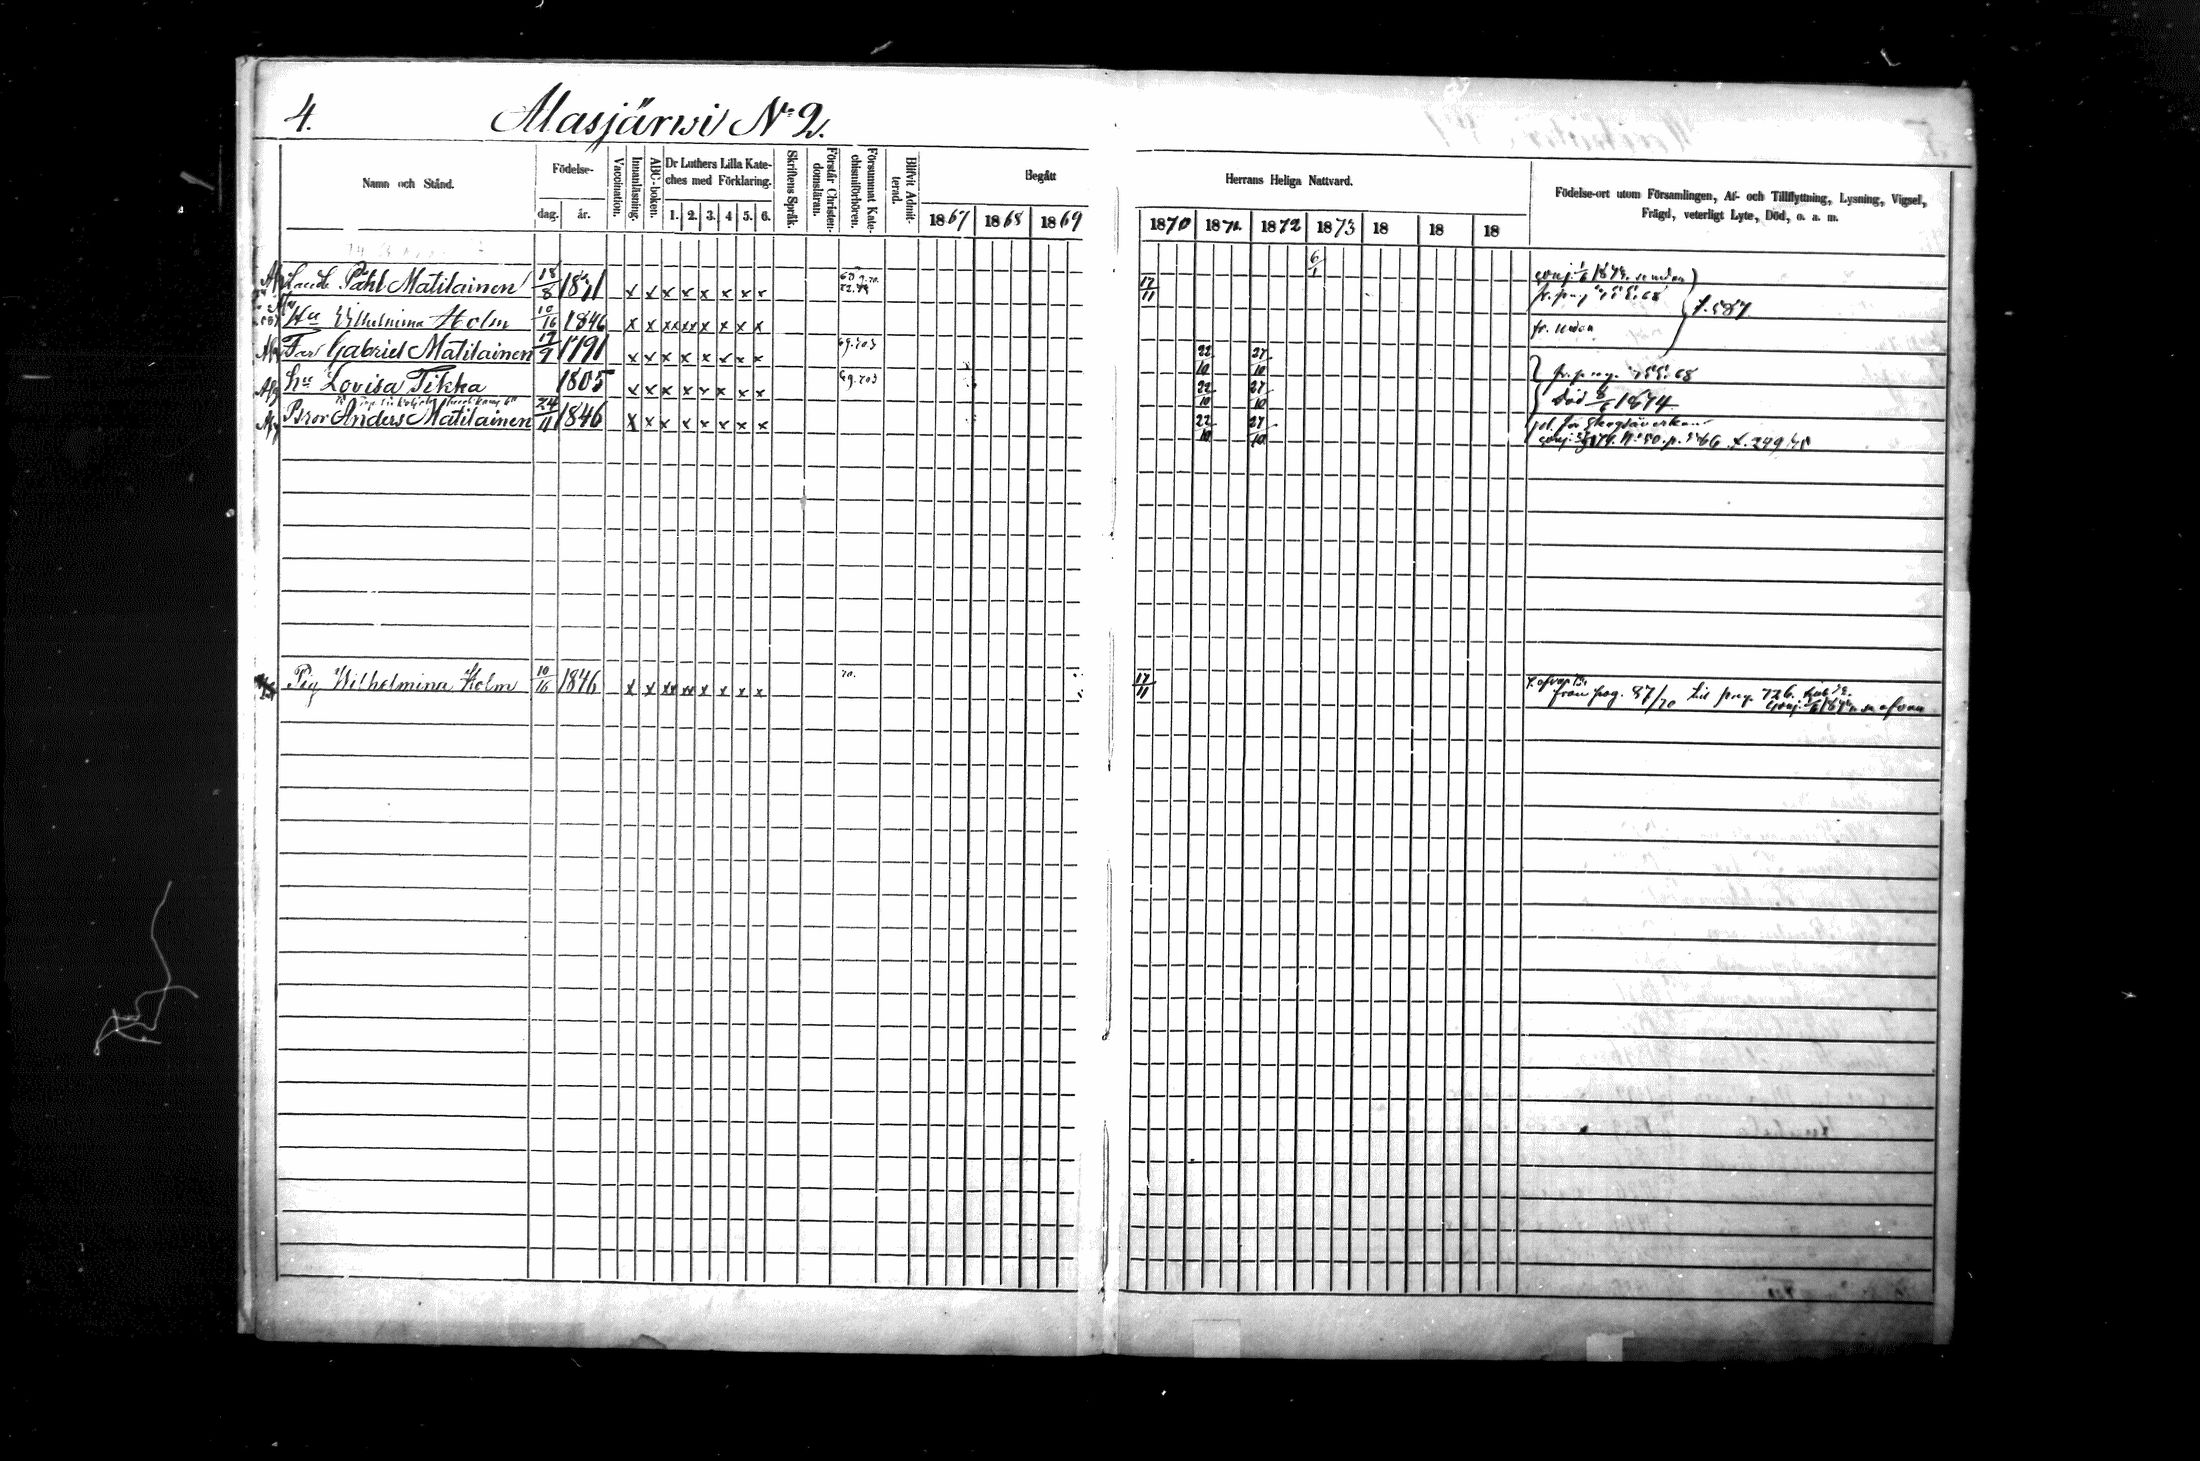 4. Alasjärwi No 2.
Namn och Stånd.
Födelse-
dag. år.
Vaccination.
Innanläsning.
ABC-boken.
Dr Luthers Lilla Kate-
ches med Förklaring.
1. 2. 3. 4 5. 6.
Skriftens Språk.
Förstår Christen-
domsläran.
Försummat Kate-
chismiförhören.
Blifvit Admit-
terad.
Begått
1867 1868 1869
Herrans Heliga Nattvard.
1870 1871. 1872 1873 18 18 18
Födelse-ort utom Församlingen, Af- och Tillflyttning, Lysning, Vigsel,
Frägd, veterligt Lyte, Död, o. a. m.
Påhl Matilainen 18/8 x x x x x x x x 17/11 6/1
Hu Wilhelmina Holm 10/16 1846 x x xx xx x x x x fr. nedan
Far Gabriel Matilainen 17/9 1791 x x x x x x x x 22/10 27/10
hu Lovisa Tikka 1805 x x x x x x x x 22/10 27/10 död 8/6 1874
Bror Anders Matilainen 24/11 1846 x x x x x x x x 22/10 27/10
Pig Wilhelmina Holm 10/16 1846 x x xx xx x x x x 70. 17/11
från pag. 87/70 till pag. 726.